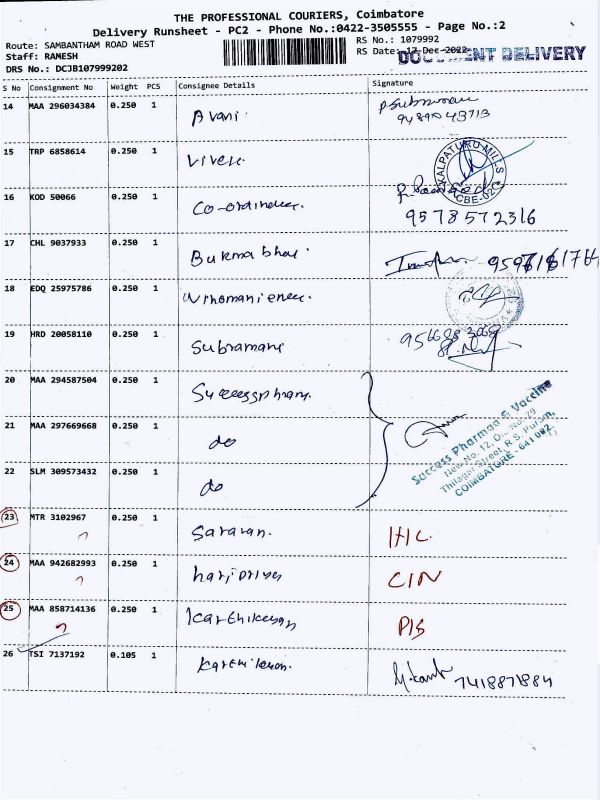 THE PROFESSIONAL COURIERS, Coimbatore
Delivery Runsheet - PC2 - Phone No.:0422-3505555 - Page No.:2
Route: SAMBANTHAM ROAD WEST
RS No.: 1079992
Staff: RAMESH
RS Date: 17-Dec-2022
DOCUMENT DELIVERY
DRS No.: DCJB107999202
S No Consignment No Weight PCS Consignee Details Signature
14 MAA 296034384 0.250 1 Avani
15 TRP 6858614 0.250 1 Vivek.
KALPATURU MILLS
CBE-02
16 KOD 50066 0.250 1
9578572316
17 CHL 9037933 0.250 1
18 EDQ 25975786 0.250 1
19 HRD 20058110 0.250 1 Subramani
20 MAA 294587504 0.250 1
21 MAA 297669668 0.250 1 do
Success Pharmaa & Vaccine
New No. 12, O. No. 29
Thilagar Street, R.S. Puram,
COIMBATORE - 641 002.
22 SLM 309573432 0.250 1 do
23 MTR 3102967 0.250 1 Saravan. IHC
24 MAA 942682993 0.250 1 haripriya CIN
25 MAA 858714136 0.250 1 Karthikeyan PIS
26 TSI 7137192 0.105 1 7418871884